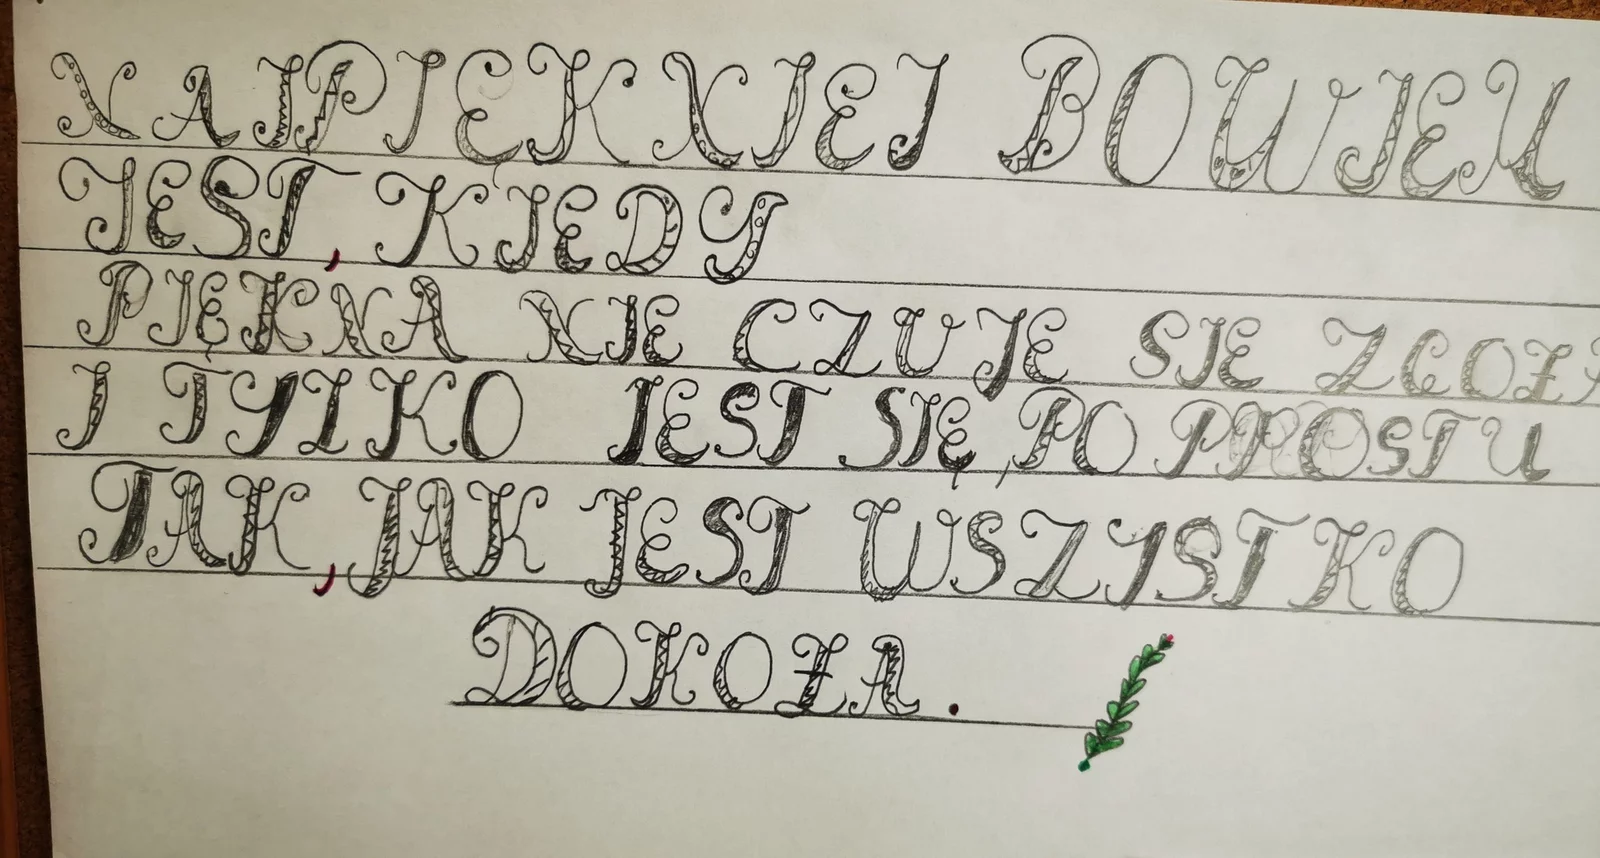 NAJPIEKNIEJ BOWIEM
JEST, KIEDY
PIĘKNA NIE CZUJE SIE ZGOŁA
I TYLKO JEST SIĘ, PO PROSTU
TAK, JAK JEST WSZYSTKO
DOKOŁA.